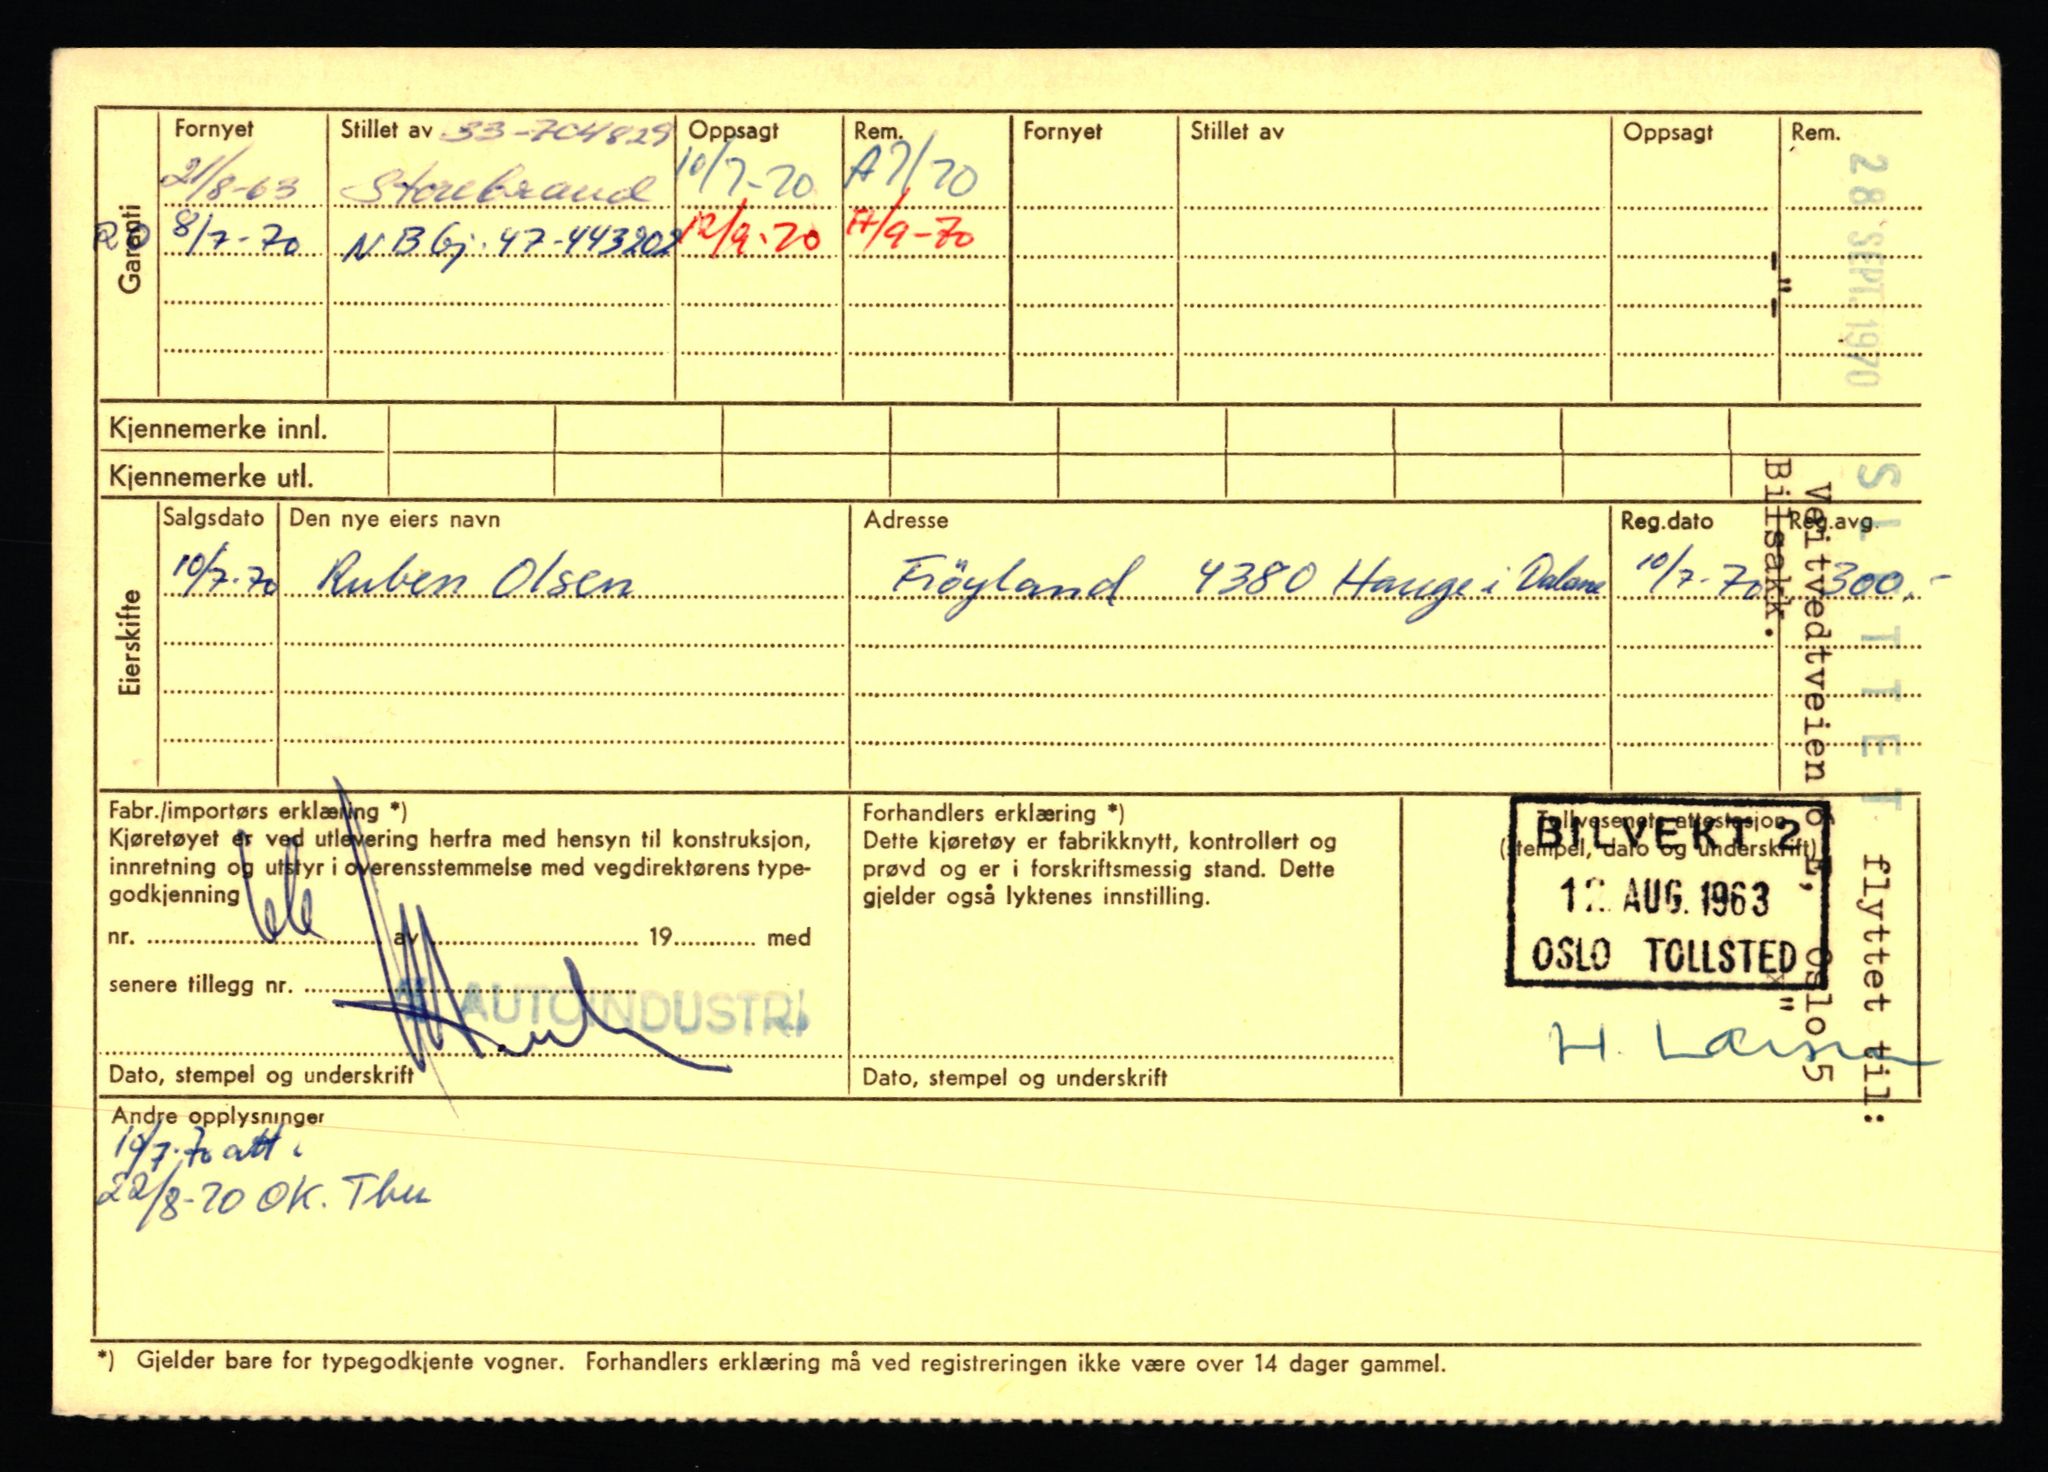 Garanti
Fornyet Stillet av 33-704829 Oppsagt Rem. Fornyet Stillet av Oppsagt Rem.
21/8-63 Storebrand 10/7-70 A7/70
8/7-70 N.B.Gj. 47-443202 12/9-70 17/9-70
Kjennemerke innl.
Kjennemerke utl.
Eierskifte
Salgsdato Den nye eiers navn Adresse Reg.dato Reg.avg.
10/7-70 Ruben Olsen Fröyland 4380 Hauge i Dalane 10/7-70 300,-
Fabr./importørs erklæring *)
Kjøretøyet er ved utlevering herfra med hensyn til konstruksjon,
innretning og utstyr i overensstemmelse med vegdirektørens type-
godkjenning
nr. av 19 med
senere tillegg nr.
AUTOINDUSTRI
Dato, stempel og underskrift
Forhandlers erklæring *)
Dette kjøretøy er fabrikknytt, kontrollert og
prøvd og er i forskriftsmessig stand. Dette
gjelder også lyktenes innstilling.
Dato, stempel og underskrift
Tollvesenets attestasjon
(stempel, dato og underskrift)
BILVEKT 2
AUG. 1963
OSLO TOLLSTED
H. Larsen
Andre opplysninger
10/7-70 att.
22/8-70 OK.
*) Gjelder bare for typegodkjente vogner. Forhandlers erklæring må ved registreringen ikke være over 14 dager gammel.
28 SEPT. 1970
SLETTET
flyttet til:
Veitvedtveien Oslo 5
Bilsakk.
-"-